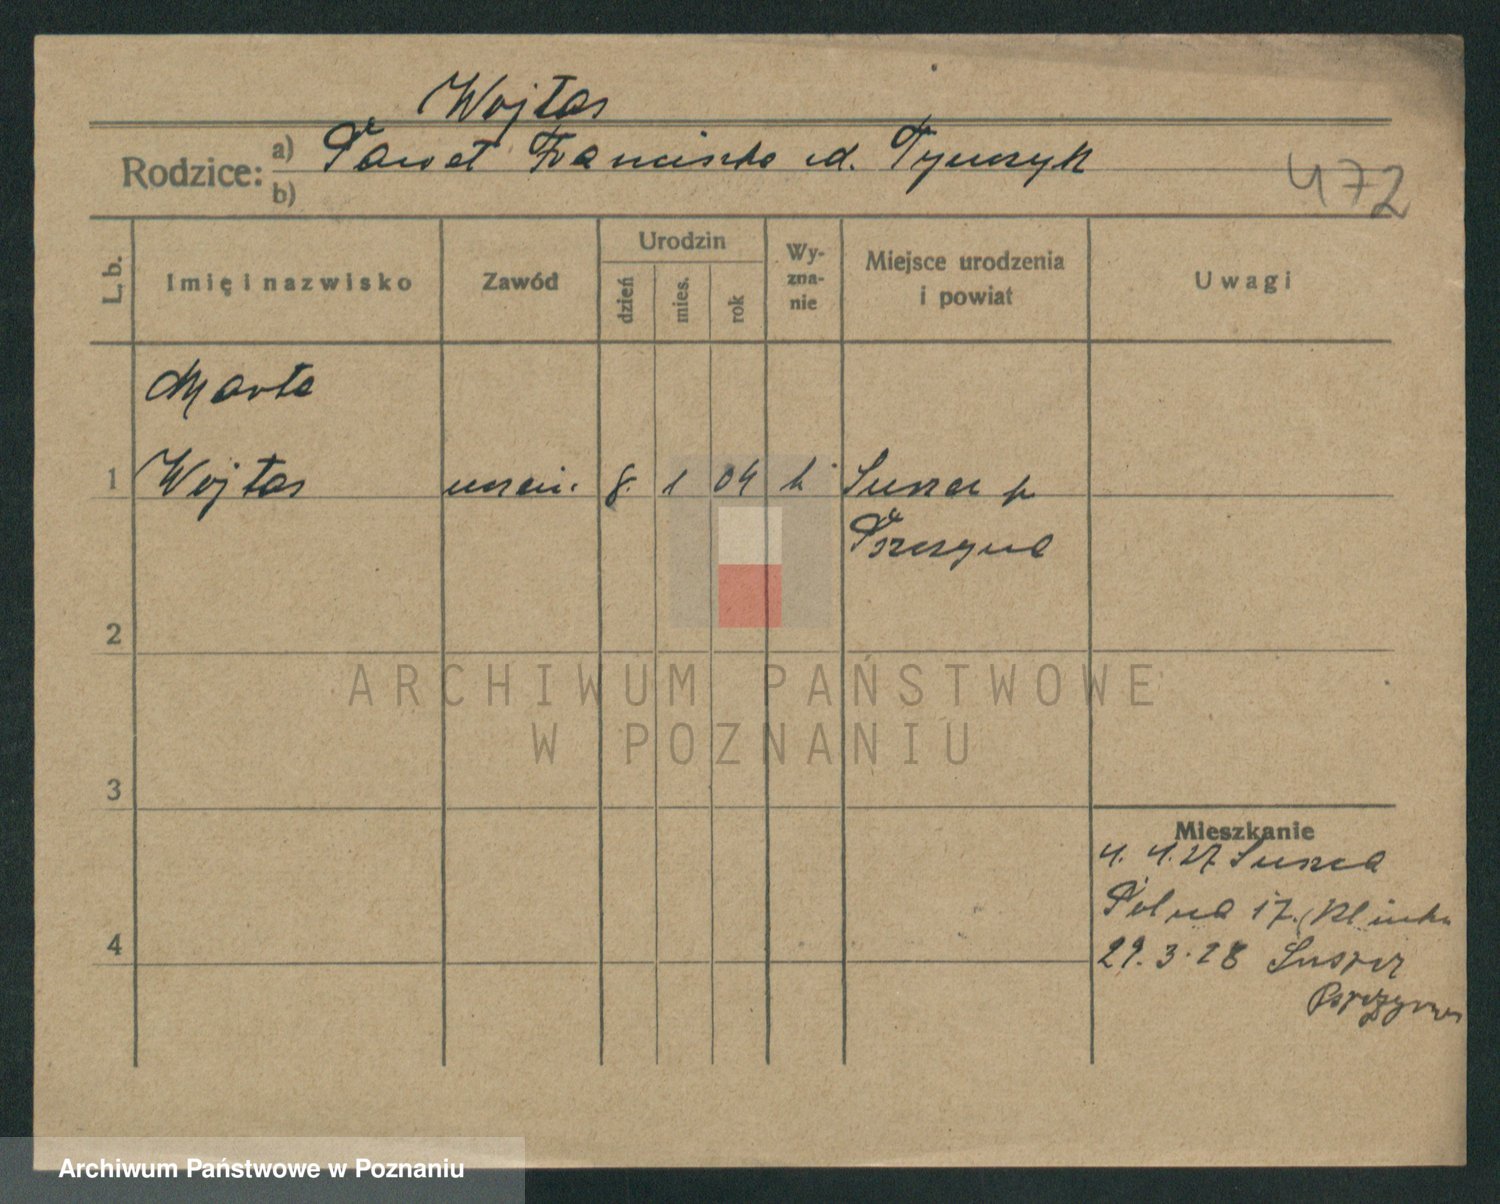 Wojtas
Rodzice: a) Paweł Franciszka d. Tymczyk
b)
472
L. b.
Imię i nazwisko
Zawód
Urodzin
dzień
mies.
rok
Wy-
zna-
nie
Miejsce urodzenia
i powiat
Uwagi
Marta
1 Wojtas 8. 1 04 k Suszec p
Pszczyna
2
ARCHIWUM PAŃSTWOWE
W POZNANIU
3
Mieszkanie
4. 4. 27 Suszec
Polna 17.
4
29. 3. 28 Suszec
Archiwum Państwowe w Poznaniu